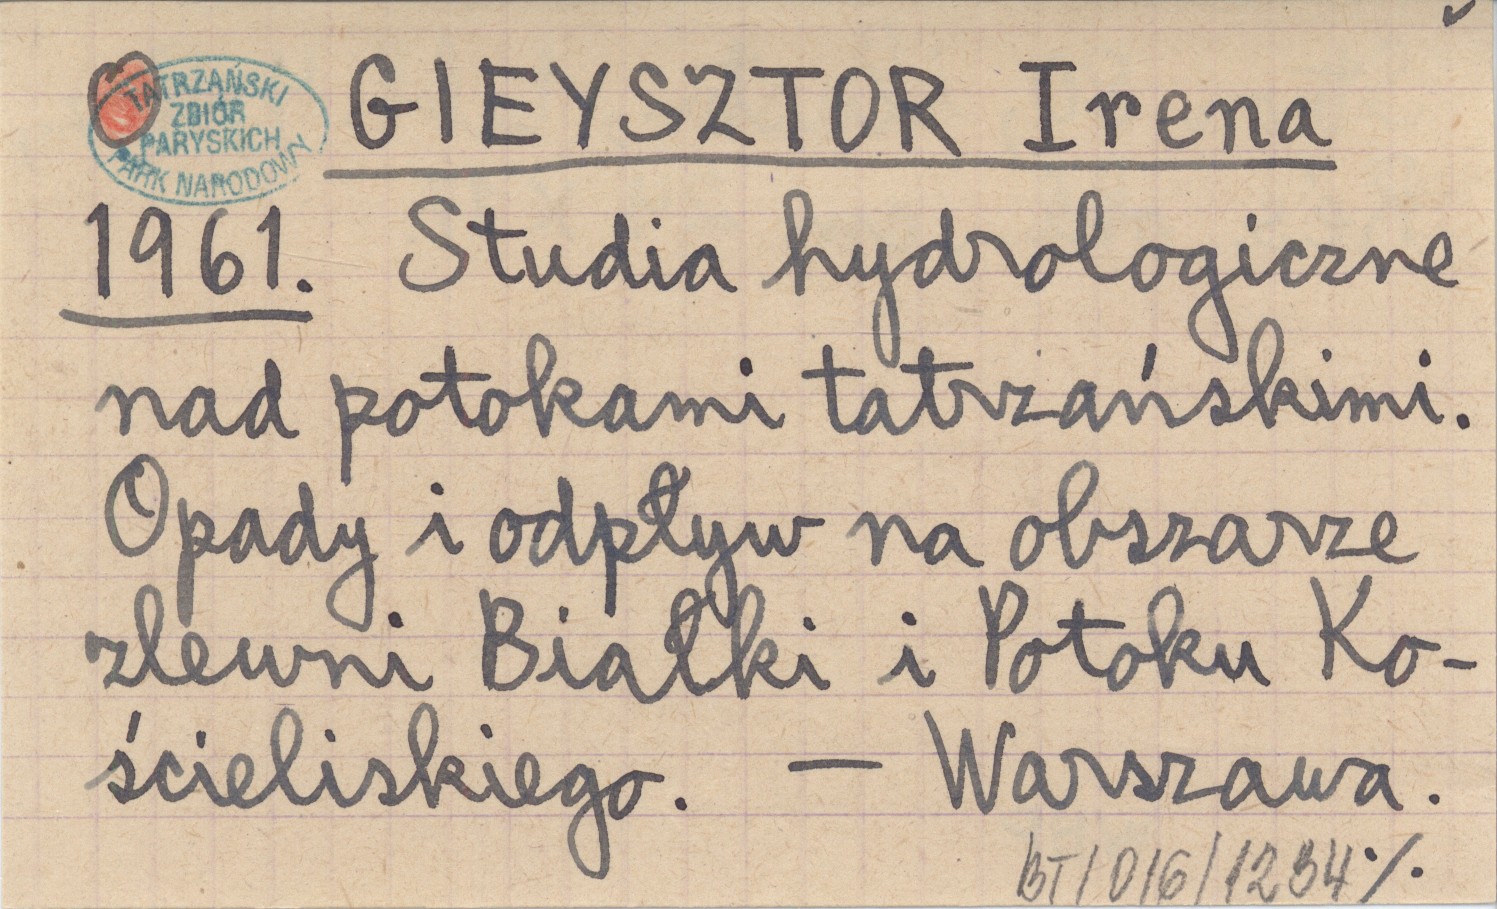 TATRZAŃSKI
ZBIÓR
PARYSKICH
PARK NARODOWY
GIEYSZTOR Irena
1961. Studia hydrologiczne
nad potokami tatrzańskimi.
Opady i odpływ na obszarze
zlewni Białki i Potoku Ko-
ścieliskiego. — Warszawa.
BT/016/1234 ./.